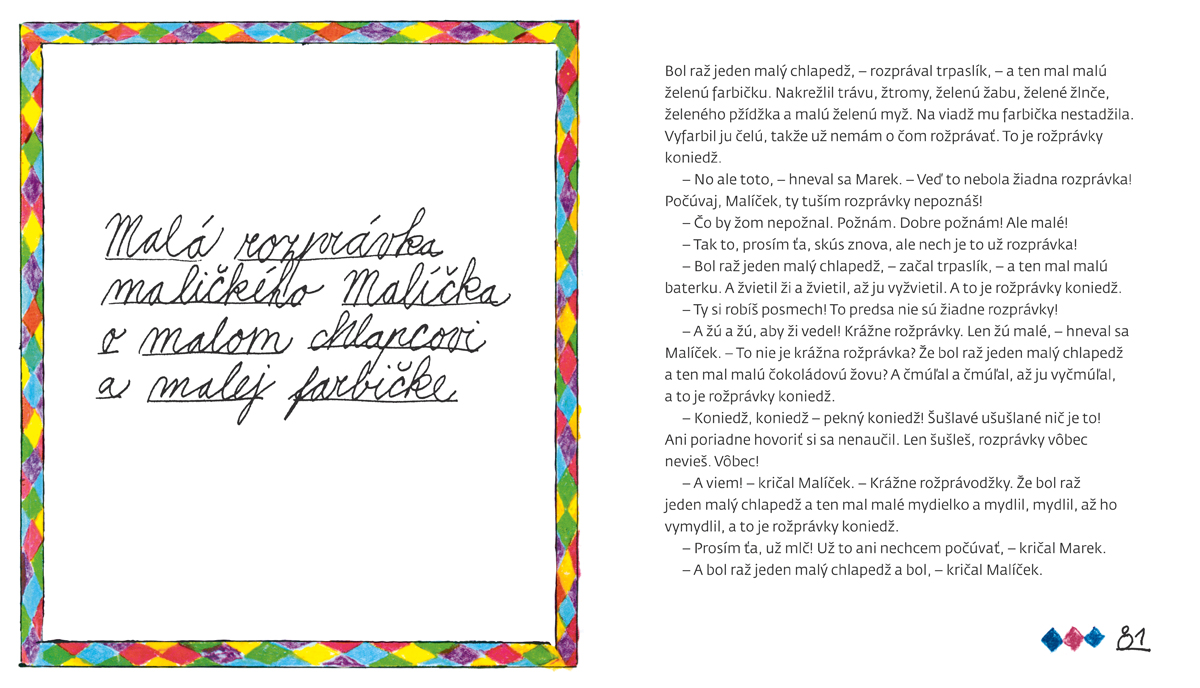 Malá rozprávka
maličkého Malíčka
o malom chlapcovi
a malej farbičke
Bol raž jeden malý chlapedž, – rozprával trpaslík, – a ten mal malú
želenú farbičku. Nakrežlil trávu, žtromy, želenú žabu, želené žlnče,
želeného pžídžka a malú želenú myž. Na viadž mu farbička nestadžila.
Vyfarbil ju čelú, takže už nemám o čom rožprávať. To je rožprávky
koniedž.
– No ale toto, – hneval sa Marek. – Veď to nebola žiadna rozprávka!
Počúvaj, Malíček, ty tuším rozprávky nepoznáš!
– Čo by žom nepožnal. Požnám. Dobre požnám! Ale malé!
– Tak to, prosím ťa, skús znova, ale nech je to už rozprávka!
– Bol raž jeden malý chlapedž, – začal trpaslík, – a ten mal malú
baterku. A žvietil ži a žvietil, až ju vyžvietil. A to je rožprávky koniedž.
– Ty si robíš posmech! To predsa nie sú žiadne rozprávky!
– A žú a žú, aby ži vedel! Krážne rožprávky. Len žú malé, – hneval sa
Malíček. – To nie je krážna rožprávka? Že bol raž jeden malý chlapedž
a ten mal malú čokoládovú žovu? A čmúľal a čmúľal, až ju vyčmúľal,
a to je rožprávky koniedž.
– Koniedž, koniedž – pekný koniedž! Šušlavé ušušlané nič je to!
Ani poriadne hovoriť si sa nenaučil. Len šušleš, rozprávky vôbec
nevieš. Vôbec!
– A viem! – kričal Malíček. – Krážne rožprávodžky. Že bol raž
jeden malý chlapedž a ten mal malé mydielko a mydlil, mydlil, až ho
vymydlil, a to je rožprávky koniedž.
– Prosím ťa, už mlč! Už to ani nechcem počúvať, – kričal Marek.
– A bol raž jeden malý chlapedž a bol, – kričal Malíček.
81